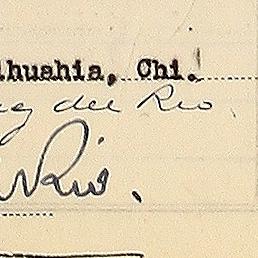 huahia, Chi.
del Rio.
Rio.